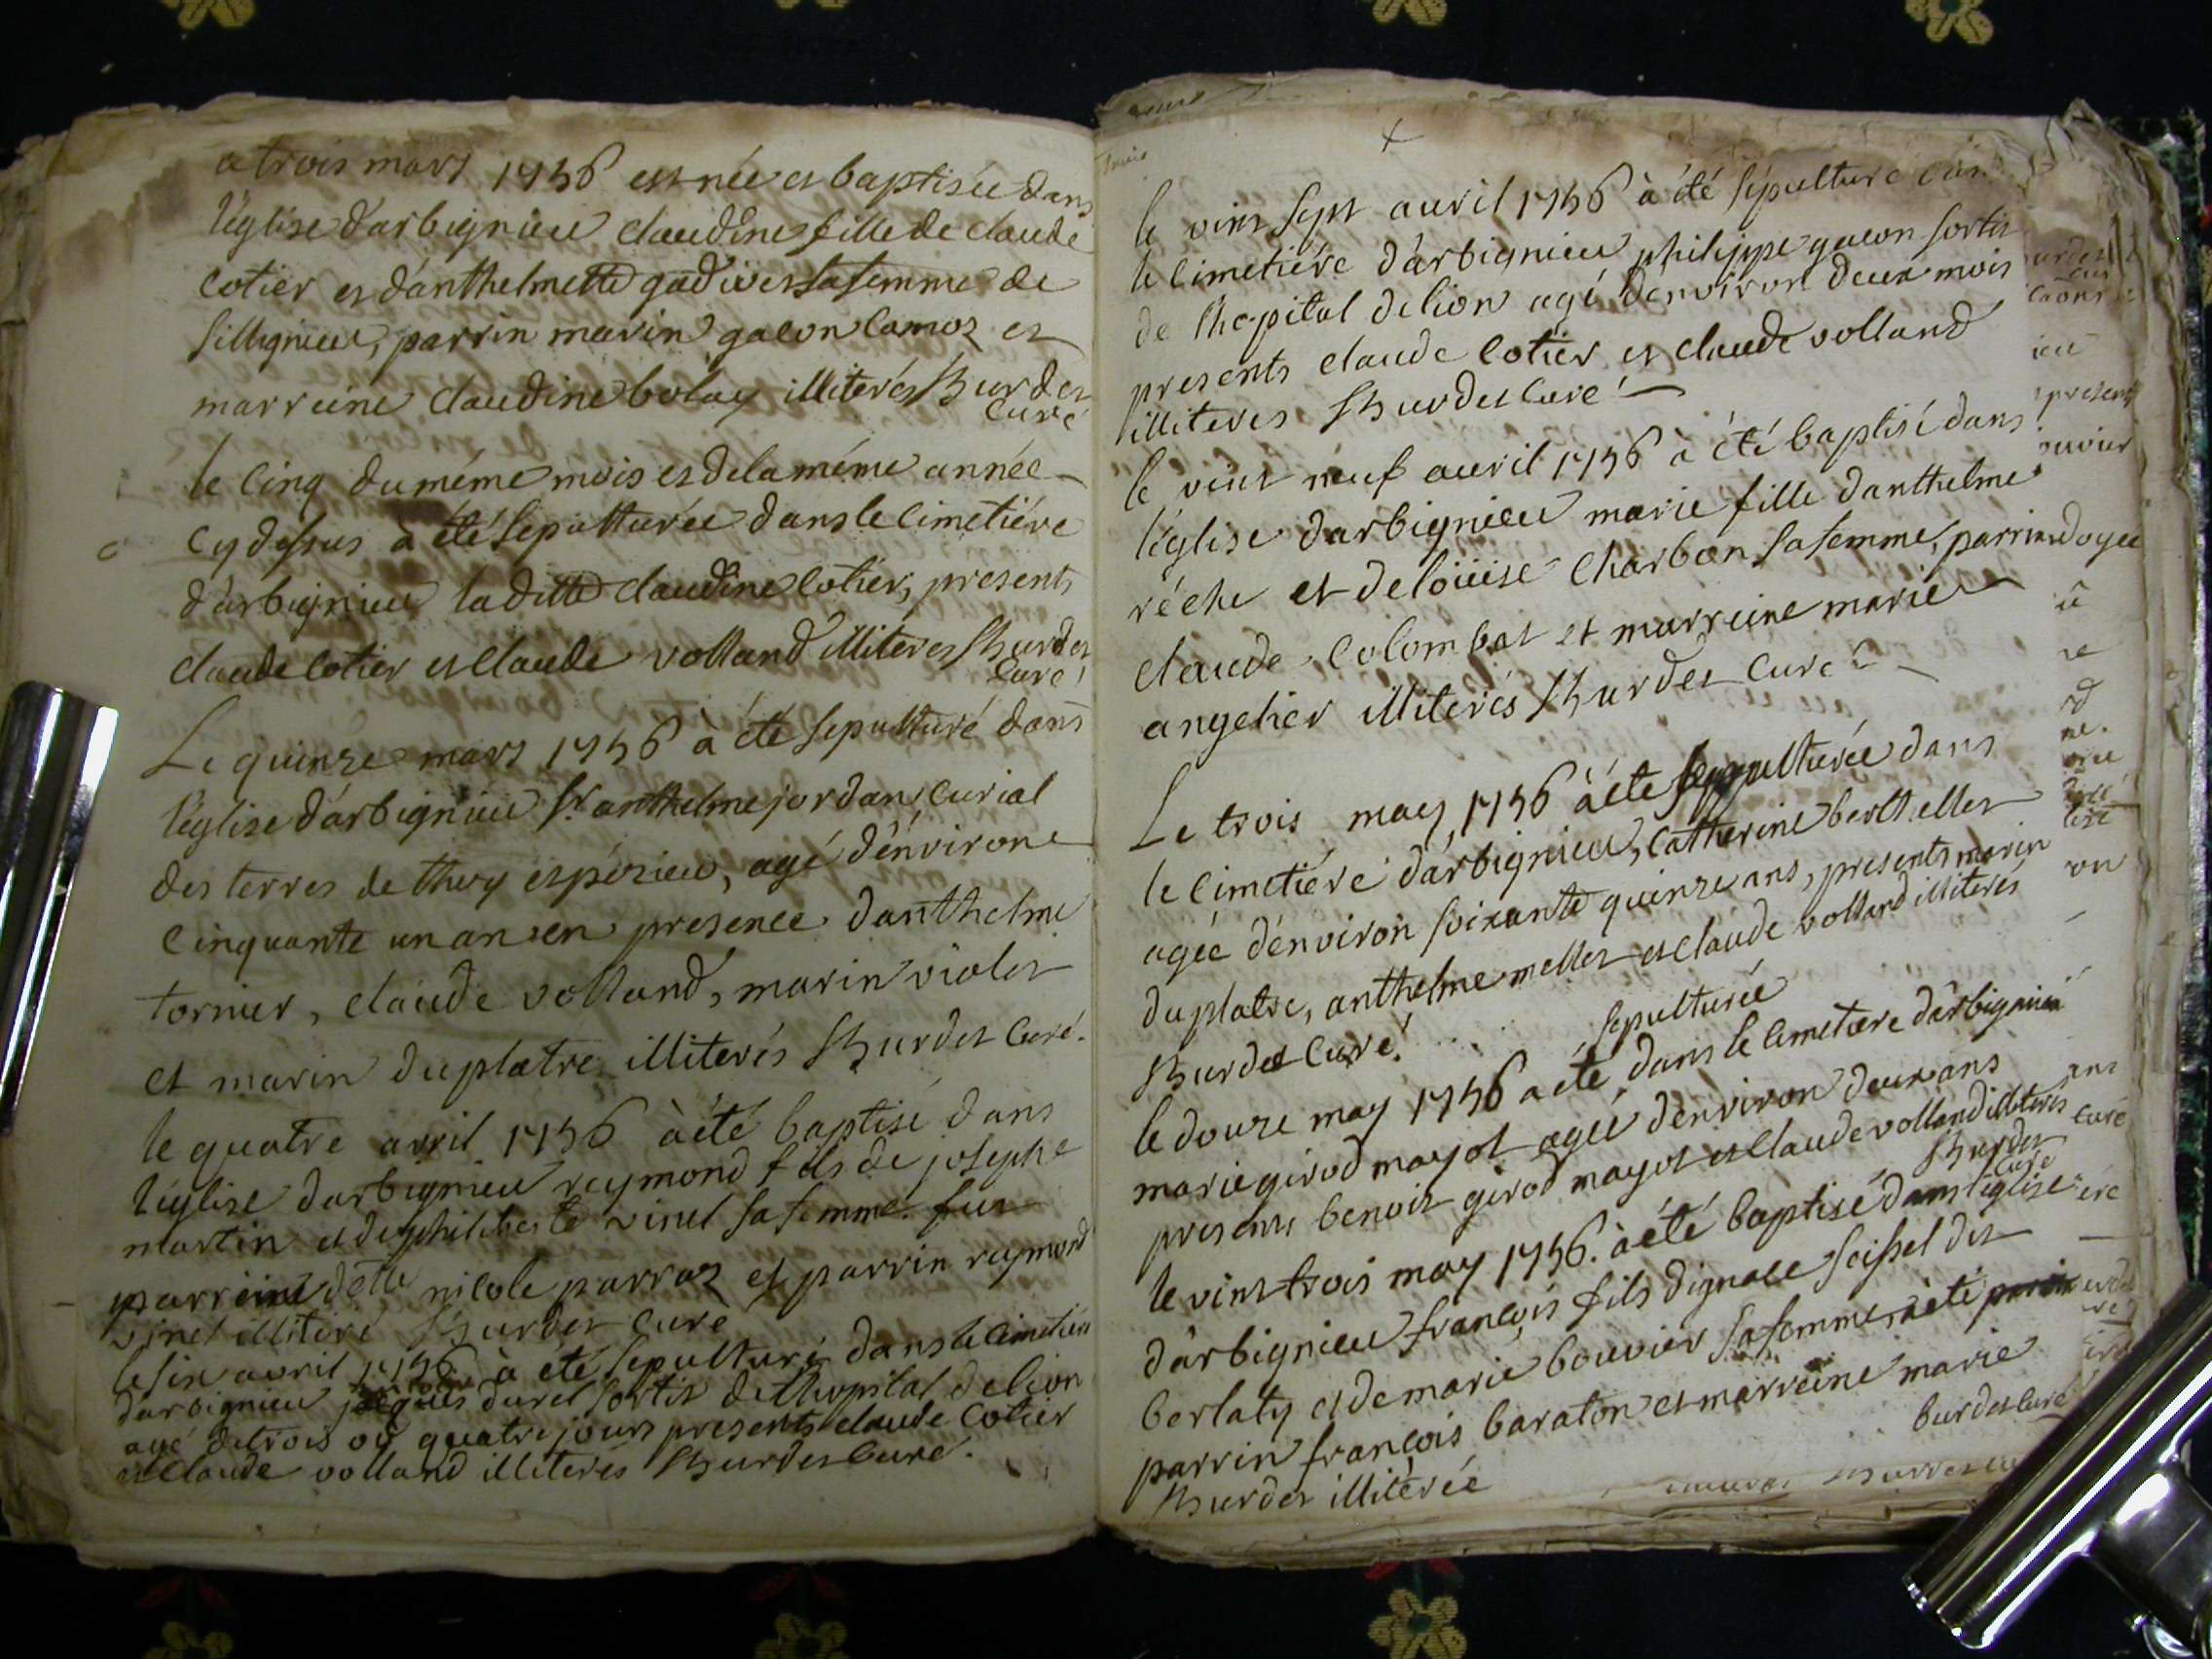 a trois mars 1756 est née et baptisée dans
l'église d'arbignieu claudine fille de claude
cotier et d'anthelmette gudivet sa femme de
sillignieu, parrin marin galon lamoz et
marreine claudine bolay illiterés Burdet
curé
le cinq du méme mois et de la méme année
cy dessus à été sepulturée dans le cimetiére
d'arbignieu la ditte claudine cotier, presents
claude cotier et claude volland illiteres Burdet
curé
Le quinze mars 1756 à été sepulturé dans
l'église d'arbignieu Sr. anthelme jordan curial
des terres de thuy et pézieu, agé d'énviron
cinquante un an en presence d'anthelme
tornier, claude volland, marin violet
et marin duplatre illiterés Burdet curé.
le quatre avril 1756 à été baptisé dans
l'église darbignieu reymond fils de josephe
martin et de philiberte vinet sa femme fut
marreine delle nicole parraz et parrin reymond
vinet illiteré Burdet curé
le six avril 1756 à été sepulturé dans le cimetiére
darbignieu jacques duret sortit de l'hopital de lion
agé de trois ou quatre jours presents claude cotier
et claude volland illiterés Burdet curé.
le vint sept avril 1756 à été sépulturé dans
le cimetiére d'arbignieu philippe galon sortit
de l'hopital de lion agé denviron deux mois
presents claude cotier et claude volland
illiteres Burdet curé
le vint neuf avril 1756 à été baptisé dans
l'église darbignieu marie fille danthelme
réche et de loüise charbon sa femme, parrin
claude colombat et marreine marie
angelier illiterés Burdet curé
Le trois may 1756 à été sepulturée dans
le cimetiére d'arbignieu, catherine berthellet
agée d'énviron soixante quinze ans, presents marin
duplatre, anthelme mellet et claude volland illiterés
Burdet curé.
sepulturée
le douze may 1756 a été dans le cimetiere d'arbignieu
marie girod mayot agée denviron deux ans
presents benoit girod mayot et claude volland illiteres
Burdet
curé
le vint trois may 1756. à été baptisé dans l'église
d'arbignieu françois fils dignace seissel dit
berlaty et de marie bouvier sa femme, à été
parrin françois baraton et marreine marie
Burdet illitérée
burdet curé